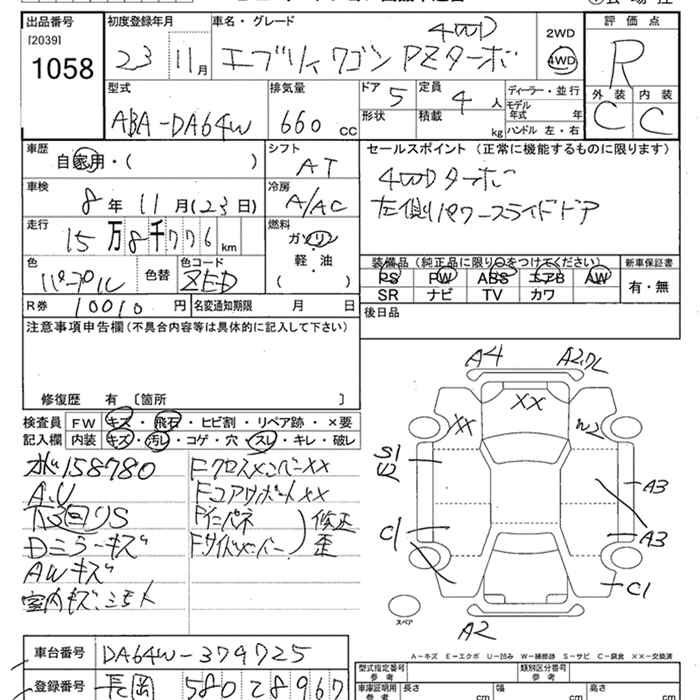 出品番号 初度登録年月 車名・グレード 評価点
[2039]
1058
23 11月 エブリィワゴン PZターボ 4WD 2WD 4WD R
型式 排気量 ドア 定員 ディーラー・並行 外装 内装
ABA-DA64W 660cc 5 4人 モデル年式 年 C C
形状 積載 kg ハンドル 左・右
車歴 シフト セールスポイント (正常に機能するものに限ります)
自家用・( ) AT 4WDターボ
車検 冷房 左側パワースライドドア
8年11月(23日) A/AC
走行 燃料
15万8千776km ガソリン
軽・油
( )
色 色替 色コード 装備品 (純正品に限り○をつけてください) 新車保証書
パープル ZED PS PW ABS エアB AW 有・無
SR ナビ TV カワ
R券 10010円 名変通知期限 月 日 後日品
注意事項申告欄(不具合内容等は具体的に記入して下さい)
修復歴 有 〔箇所 〕
検査員 FW キズ・飛石・ヒビ割・リペア跡・×要
記入欄 内装 キズ・汚レ・コゲ・穴・スレ・キレ・破レ
158780 FクロスメンバーXX
A.U FコアサポートXX
下廻りS Fインパネ
Dミラーキズ Fサイドメンバー
修正
歪
AWキズ
室内キズ・シミ大
A4 A2
XX XX
S1
U2
A3
A3
C1
C1
A2
スペア
A-キズ E-エクボ U-凹み W-補修跡 S-サビ C-腐食 XX-交換済
車台番号 DA64W-379725 型式指定番号 参考 類別区分番号 参考
登録番号 長岡 580 28967 車庫証明用 参考 長さ cm 幅 cm 高さ cm